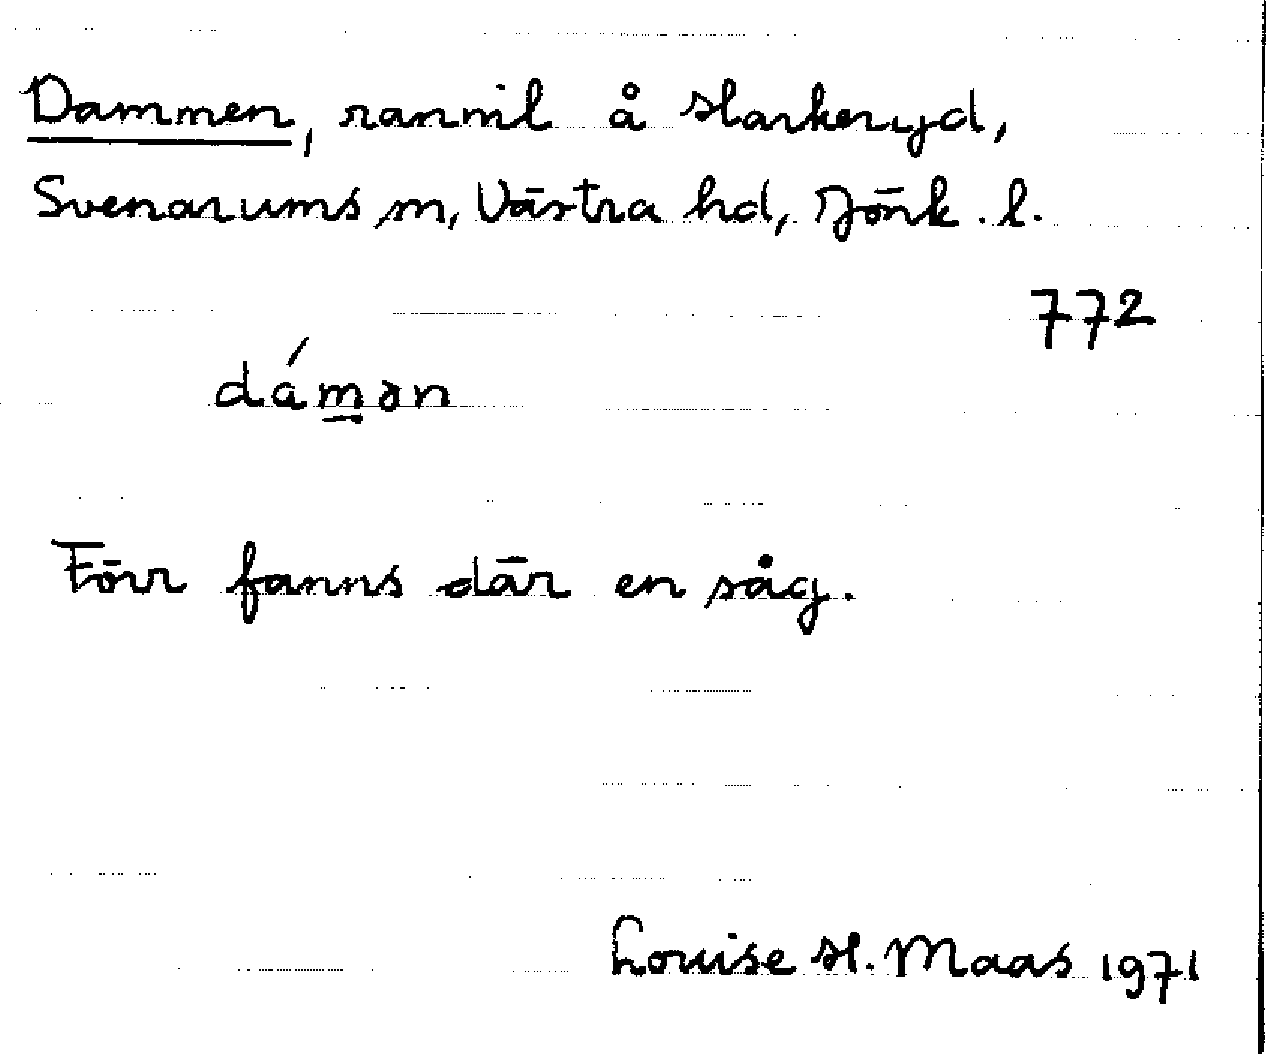 Dammen, rannil å Harkeryd,
Svenarums sn, Västra hd, Jönk. l.
772
dámən
Förr fanns där en såg.
Louise H. Maas 1971